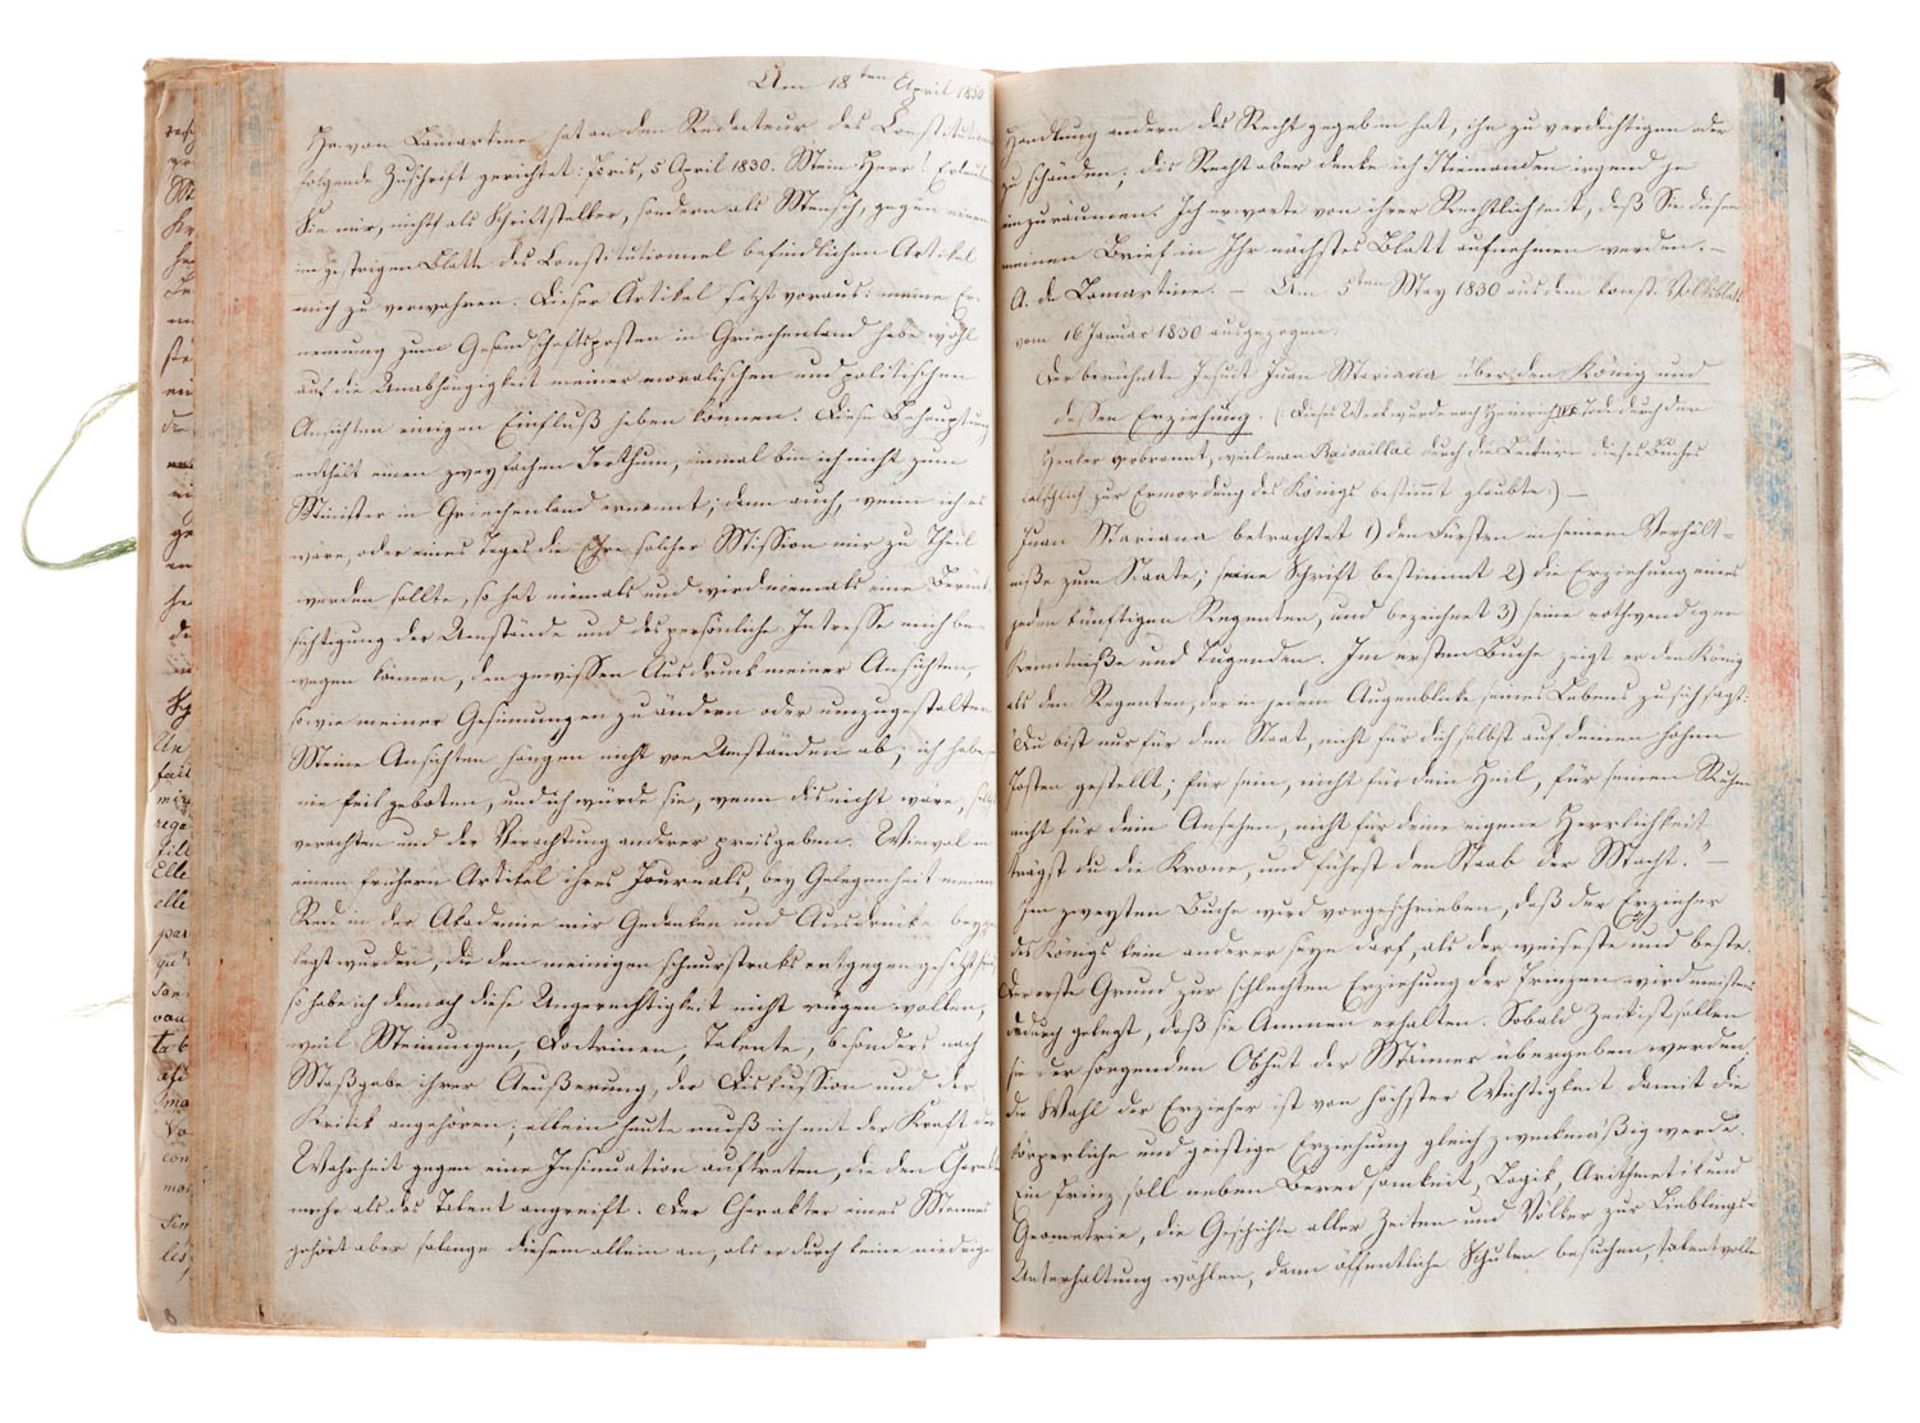 Am 18ten April 1830
Hr. von Lamartine hat an den Redacteur des Constitution
folgende Zuschrift gerichtet: Paris, 5 April 1830. Mein Herr! Erlauben
Sie mir, nicht als Schriftsteller, sondern als Mensch, gegen einen
im gestrigen Blatte des Constitutionnel befindlichen Artikel
mich zu verwahren. Dieser Artikel setzt voraus: meine Er-
nennung zum Gesandschaftsposten in Griechenland habe wohl
auf die Unabhängigkeit meiner moralischen und politischen
Ansichten einigen Einfluß haben können. Diese Behauptung
enthält einen zweyfachen Irrthum, einmal bin ich nicht zum
Minister in Griechenland ernannt; dann auch, wenn ich es
wäre, oder eines Tages die Ehre solcher Mission mir zu Theil
werden sollte, so hat niemals und wird niemals eine Berück
sichtigung der Umstände und das persönliche Intresse mich be-
wegen können, den gewissen Ausdruck meiner Ansichten,
sowie meiner Gesinnungen zu ändern oder umzugestalten
Meine Ansichten hängen nicht von Umständen ab; ich habe
nie feil geboten, und ich würde sie, wenn dis nicht wäre, selbst
verachten und der Verachtung anderer preisgeben. Wiewol in
einem frühern Artikel ihres Journals, bey Gelegenheit meiner
Rede in der Akademie mir Gedanken und Ausdrücke beyge
legt wurden, die den meinigen schnurstraks entgegengesetzt sind
so habe ich demnach diese Ungerechtigkeit nicht rügen wollen,
weil Meinungen, Doctrinen, Talente, besonders nach
Maßgabe ihrer Aeußerung, der Diskussion und der
Kritik angehören; allein heute muß ich mit der Kraft der
Wahrheit gegen eine Insinuation auftreten, die den Charakt
mehr als das Talent angreift. Der Charakter eines Mannes
gehört aber solange diesem allein an, als er durch keine niedrige
Handlung andern das Recht gegeben hat, ihn zu verdächtigen oder
zu schänden; dis Recht aber denke ich Niemanden irgend je
einzuräumen. Ich erwarte von ihrer Rechtlichkeit, daß Sie diesen
meinen Brief in Ihr nächstes Blatt aufnehmen werden. –
A. de Lamartine. – Am 5ten May 1830 aus dem const. Volksblatt
vom 16 Januar 1830 ausgezogen.
Der berühmte Jesuit Juan Mariana über den König und
dessen Erziehung. (: Dieses Werk wurde nach Heinrich IV. Tode durch den
Henker verbrannt, weil man Ravaillac durch die Lectüre dieses Buches
fälschlich zur Ermordung des Königs bestimmt glaubte:) –
Juan Mariana betrachtet 1) den Fürsten in seinem Verhält=
niße zum Staate; seine Schrift bestimmt 2) die Erziehung eines
jeden künftigen Regenten, und bezeichnet 3) seine nothwendigen
Kenntniße und Tugenden. Im ersten Buche zeigt er den König
als den Regenten, der in jedem Augenblicke seines Lebens zu sich sagt:
"Du bist nur für den Staat, nicht für dich selbst auf deinen hohen
Posten gestellt; für sein, nicht für dein Heil, für seinen Ruhm
nicht für dein Ansehen, nicht für deine eigene Herrlichkeit
trägst du die Krone, und führst den Staab der Macht." –
Im zweyten Buche wird vorgeschrieben, daß der Erzieher
des Königs kein anderer seyn darf, als der weiseste und beste.
Der erste Grund zur schlechten Erziehung der Prinzen wird meistens
dadurch gelegt, daß sie Ammen erhalten. Sobald Zeit ist sollen
sie der sorgenden Obhut der Männer übergeben werden.
Die Wahl der Erzieher ist von höchster Wichtigkeit damit die
körperliche und geistige Erziehung gleich zweckmäßig werde.
Ein Prinz soll neben Beredsamkeit, Logik, Arithmetik und
Geometrie, die Geschichte aller Zeiten und Völker zur Lieblings=
Unterhaltung wählen, dann öffentliche Schulen besuchen, talentvolle